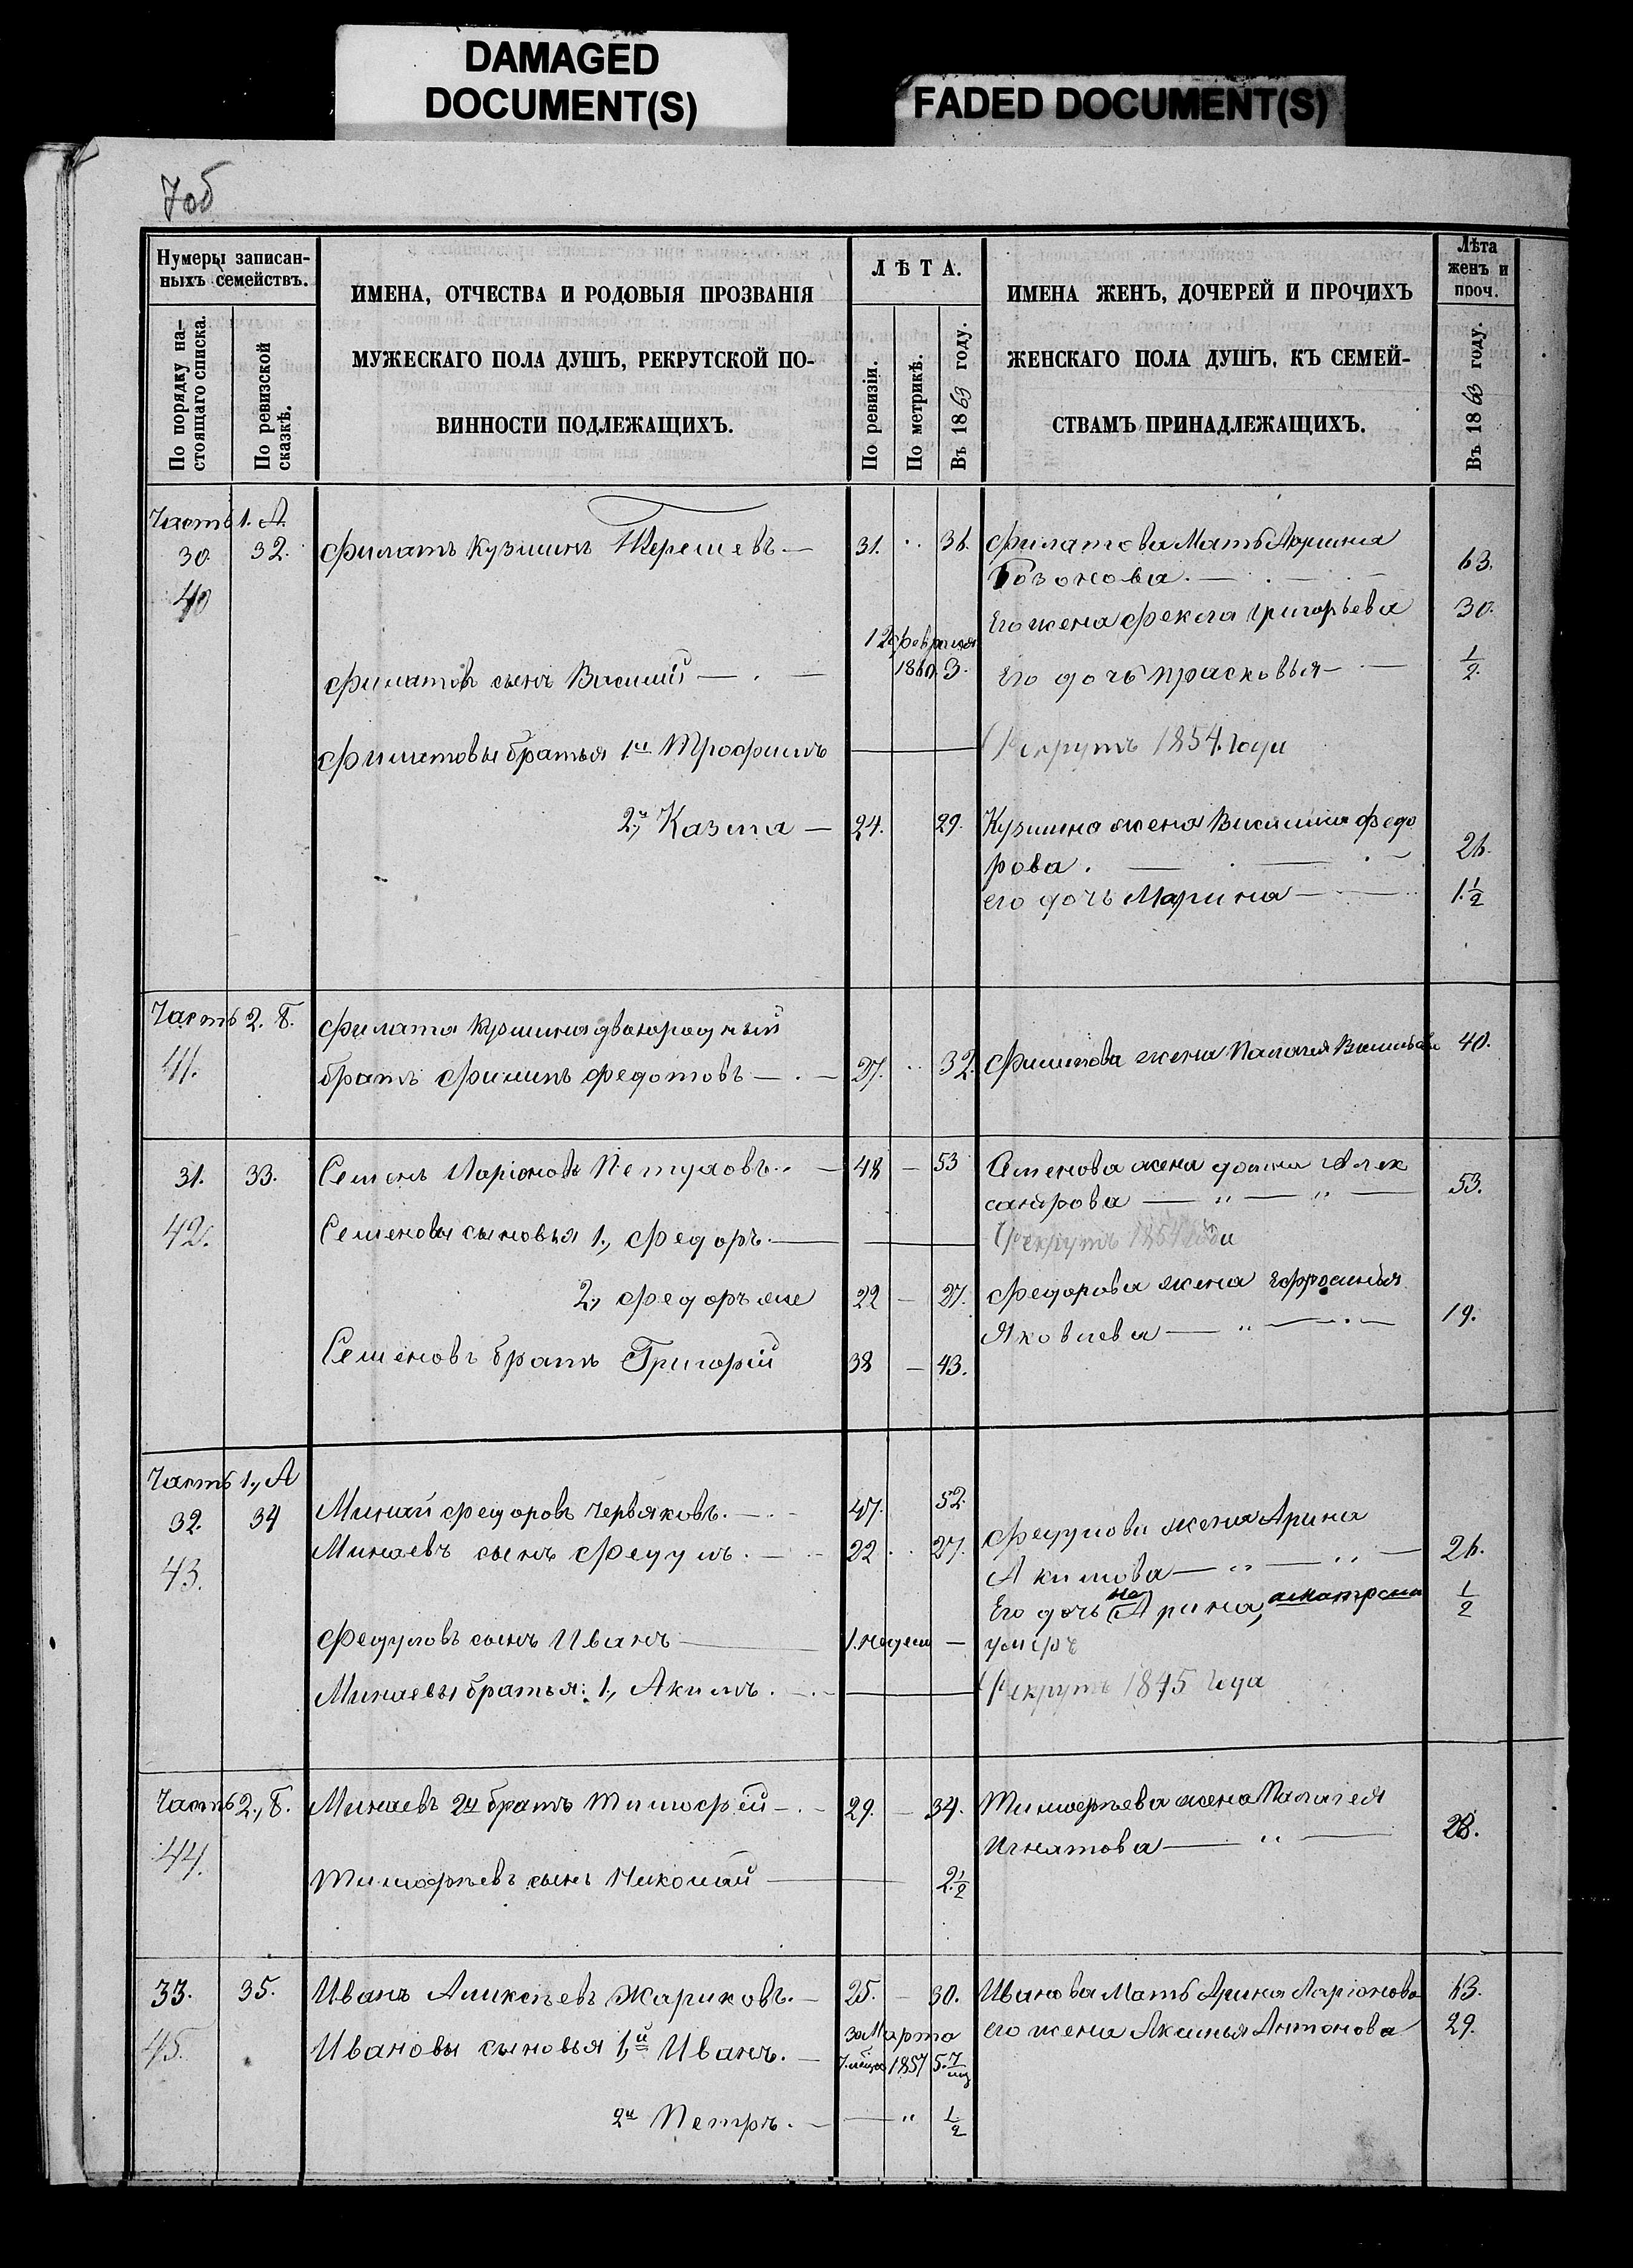 DAMAGED
DOCUMENT(S)
FADED DOCUMENT(S)
7об
Нумеры записан-
ныхъ семействъ.
По порядку на-
стоящаго списка.
По ревизской
сказкѣ.
ИМЕНА, ОТЧЕСТВА И РОДОВЫЯ ПРОЗВАНІЯ
МУЖЕСКАГО ПОЛА ДУШЪ, РЕКРУТСКОЙ ПО-
ВИННОСТИ ПОДЛЕЖАЩИХЪ.
ЛѢТА.
По ревизіи.
По метрикѣ.
Въ 1863 году.
ИМЕНА ЖЕНЪ, ДОЧЕРЕЙ И ПРОЧИХЪ
ЖЕНСКАГО ПОЛА ДУШЪ, КЪ СЕМЕЙ-
СТВАМЪ ПРИНАДЛЕЖАЩИХЪ.
Лѣта
женъ и
проч.
Въ 1863 году.
Часть 1. А.
30. 32. Филатъ Кузминъ Терешевъ — 31. 36. Филатова Мать Арина
63.
40
Его жена Фекла Григорьева 30.
12 февраля
Филатовъ сынъ Василий — 1860. 3. Его дочь Прасковья — 1/2.
Филатовы братья 1й Трофимъ — Рекрутъ 1854. Года
2й, Казма — 24. 29. Кузмина жена Василиса Федо
рова. — 26.
его дочь Марина — 1.1/2
Часть 2. Б. Филата Кузмина двоюродный
41. братъ Филипъ Федотовъ — 27. 32. Филипова жена Палагея Васильева 40.
31. 33. Семенъ Ларіоновъ Петуховъ. — 48 — 53 Семенова жена Домна Алек
сандрова — " — " — 53.
42. Семеновы сыновья 1., Федоръ. — Рекрутъ 1854 Года
2., Федоръ же 22 — 27. Федорова жена Ефросинья
Яковлева — " — 19.
Семеновъ братъ Григорій 38 — 43.
Часть 1., А
32. 34 Минай Федоровъ Червяковъ. — 47. 52.
Минаевъ сынъ Федулъ. — 22 27. Федулова жена Арина
43. Акимова — " — " — 26.
Его дочь не Арина, а Матрена 1/2
Федуловъ сынъ Иванъ — 1. недели — умеръ
Минаевы братья: 1., Акимъ. — Рекрутъ 1845 Года
Часть 2., Б. Минаевъ 2й братъ Тимофій — 29. — 34. Тимофѣева жена Палагея
44. Игнатова — " — 28.
Тимофѣевъ сынъ Николай — 2.1/2
33. 35. Иванъ Аликсѣевъ Жариковъ. — 25. — 30. Иванова Мать Арина Ларіонова 63.
30 Марта его жена Аксинья Антонова 29.
45. Ивановы сыновья 1,й Иванъ. — 7. мѣсяц 1857 5.7/мц
2й Петръ. — " 1/2